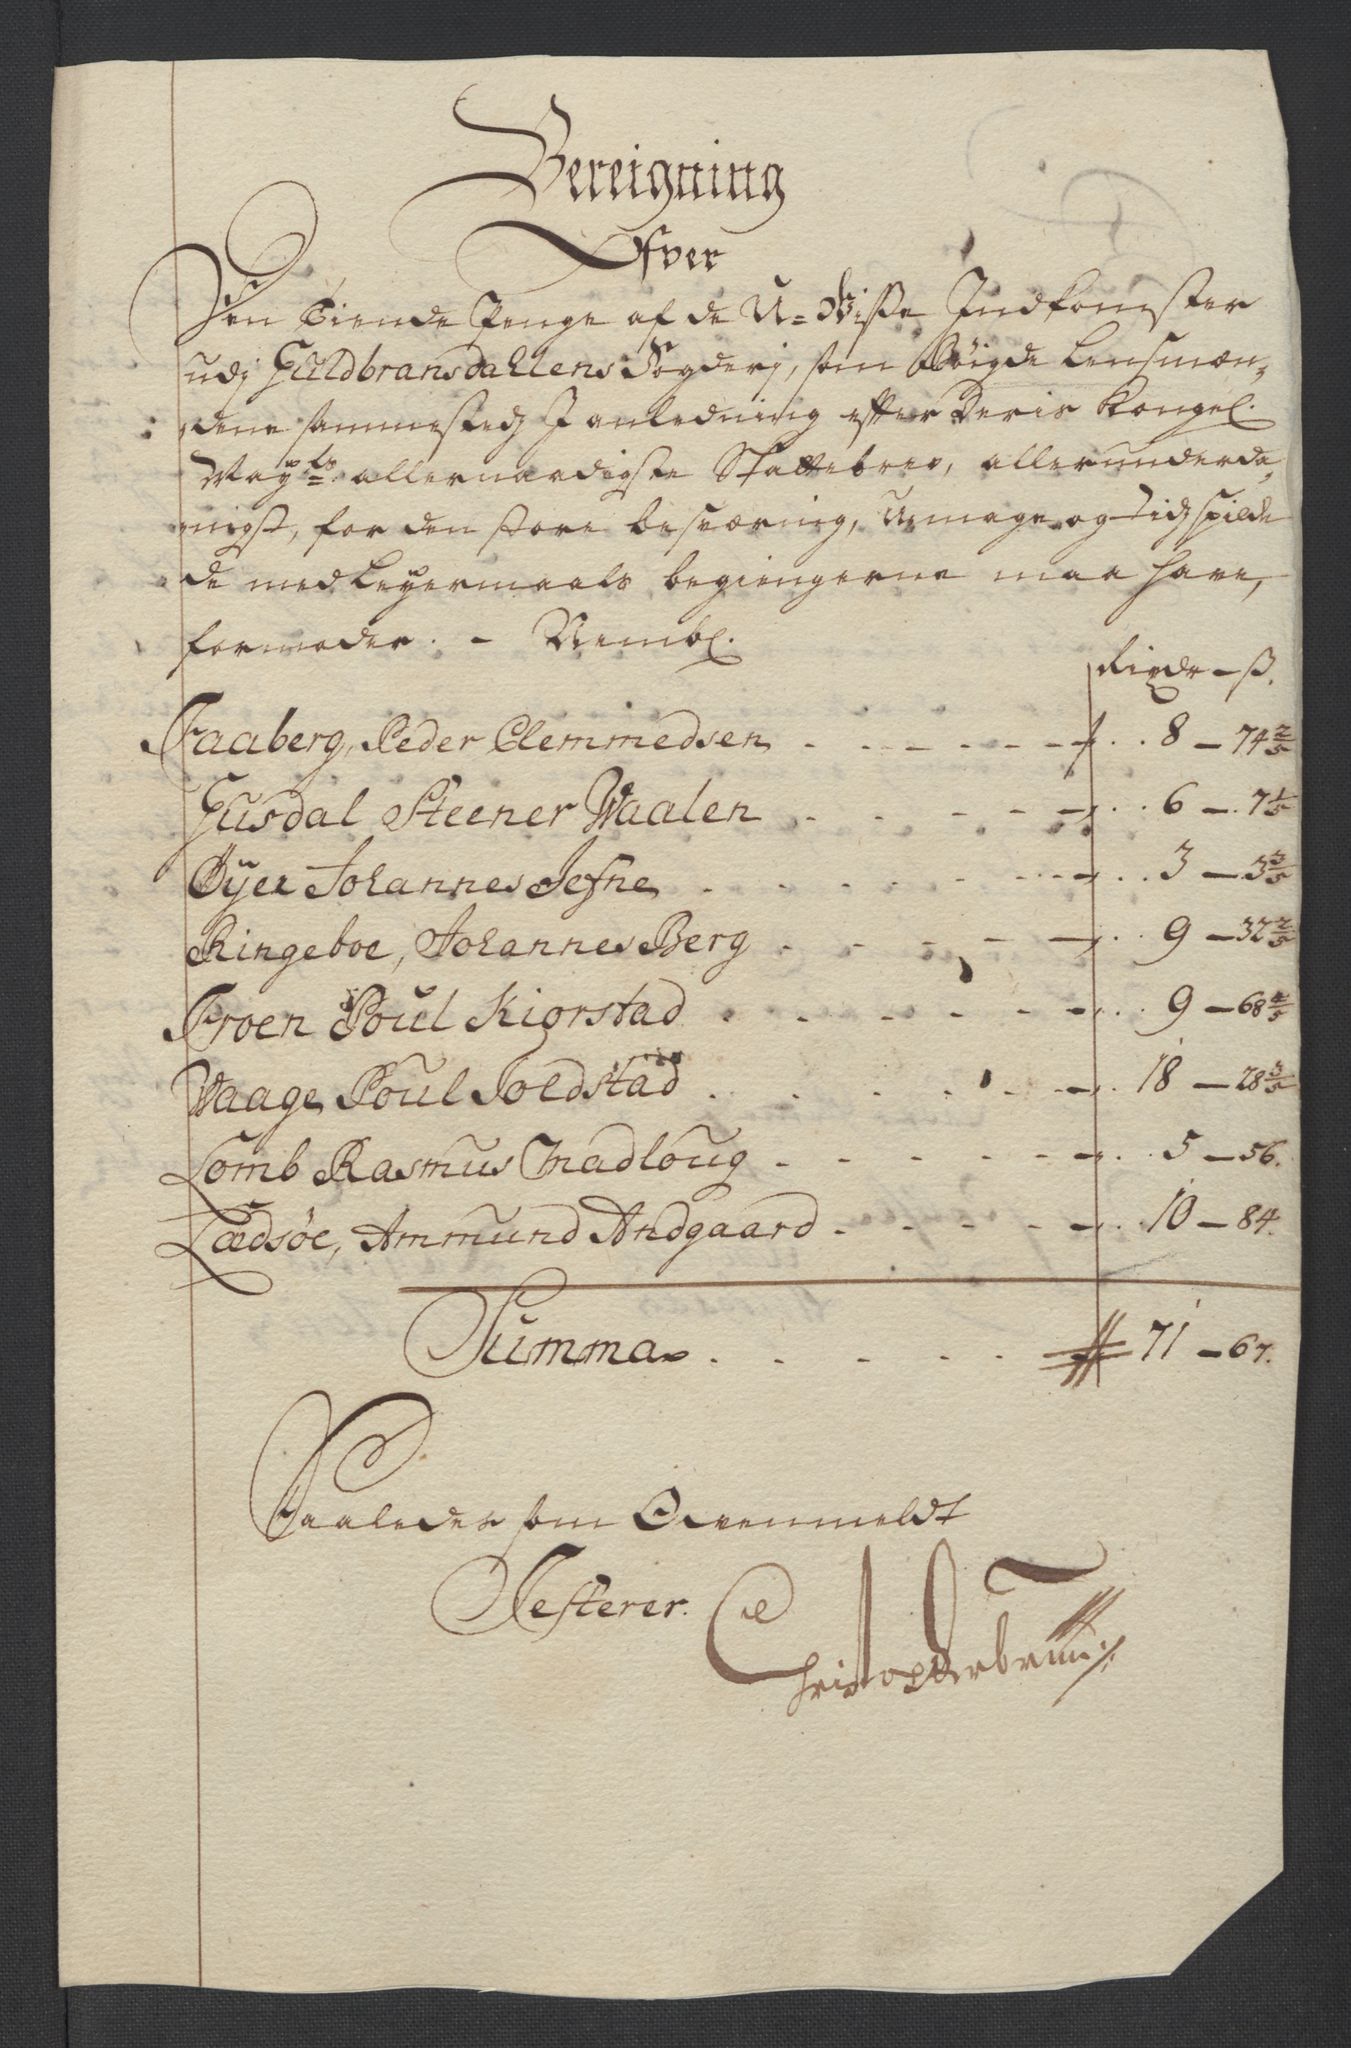 Bereigning
Ofver
Den Tiende Penge af de U-Visse Indkomster
udj Guldbransdahlens Fogderj, som Bøigde Lensmæn-
dene sammestedz I anledning effter Deris Kongel.
Mayts allernaadigste Skattebrev, allerunderda-
nigst, for den store besværing, Umage og Tidzspilde
de med Leyermaals begiengerne maa have,
formoder. - Nembl.
Rixdr - ß.
Faaberg, Peder Clemmedsen - 8 - 74 2/5
Gusdal Steener Waalen - 6 - 7 1/5
Øÿer Johannes Jefne - 3 - 3 3/5
Ringeboe, Johannes Berg - 9 - 32 2/5
Froen Poul Kiorstad - 9 - 68 4/5
Waage Poul Soldstad - 18 - 28 3/5
Lomb Rasmus Gradloug - 5 - 56.
Lædsøe, Ammund Andgaard - 10 - 84.
Summa - 71 - 67.
Saaledes som Ovenmeldt
Testerer.
Christopher Brun